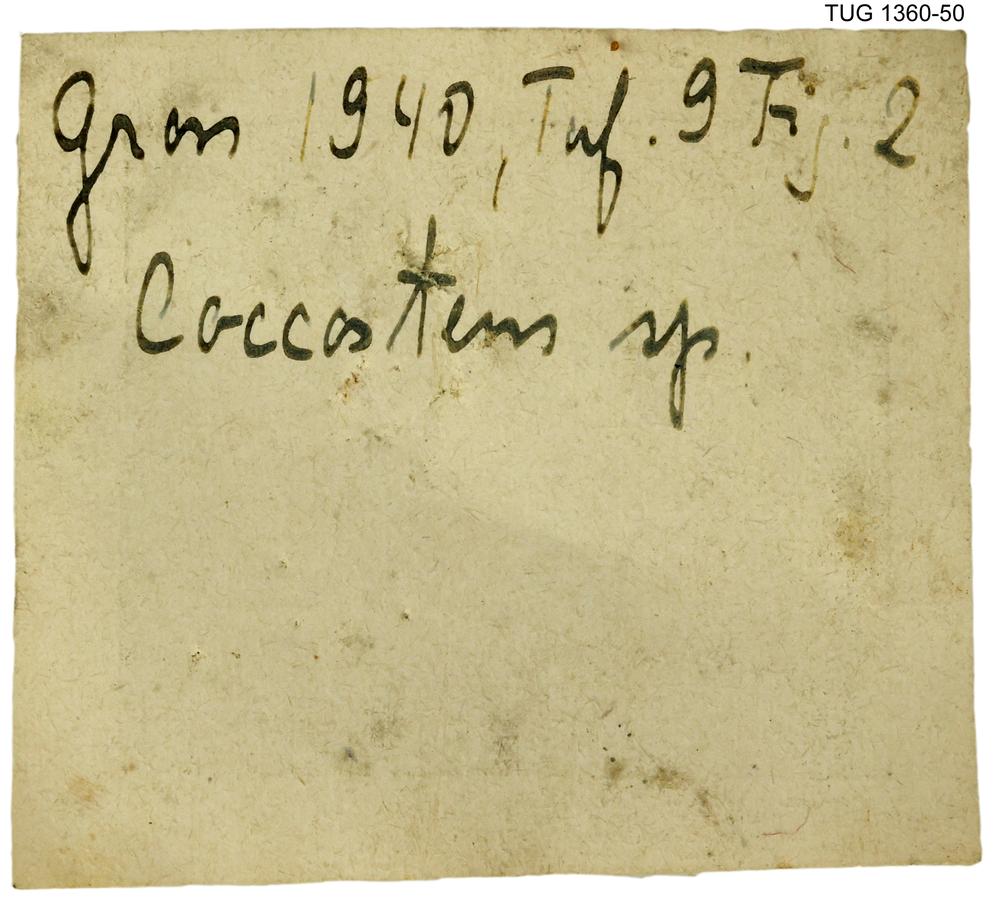 TUG 1360-50
Gross 1940, Taf. 9 Fig. 2
Coccosteus sp.